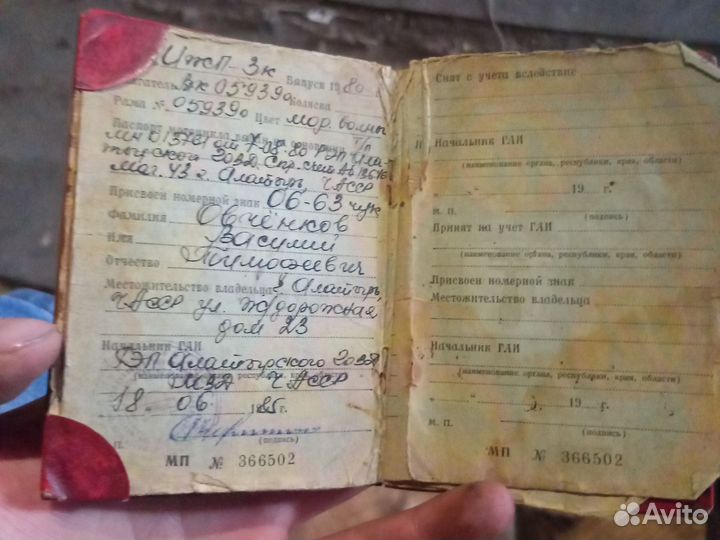 ИЖП-3к Выпуск 1980
Двигатель 3к 059390 Коляска
Рама № 059390 Цвет мор. волны
Паспорт мотоцикла
Маг. 43 г. Алатырь, ЧАССР
Присвоен номерной знак 06-63 чук
Фамилия Овчёнков
Имя Василий
Отчество Тимофеевич
Местожительство владельца г. Алатырь,
ЧАССР ул. Ж/дорожная
дом 23
Начальник ГАИ
РЭП Алатырского ГОВД
(наименование органа, республики, края, области)
МВД ЧАССР
18. 06 1985г.
М. П. (подпись)
МП № 366502
Снят с учета вследствие
Начальник ГАИ
(наименование органа, республики, края, области)
„ “ 19 г.
М. П. (подпись)
Принят на учет ГАИ
(наименование органа, республики, края, области)
Присвоен номерной знак
Местожительство владельца
Начальник ГАИ
(наименование органа, республики, края, области)
„ “ 19 г.
М. П. (подпись)
МП № 366502
Avito